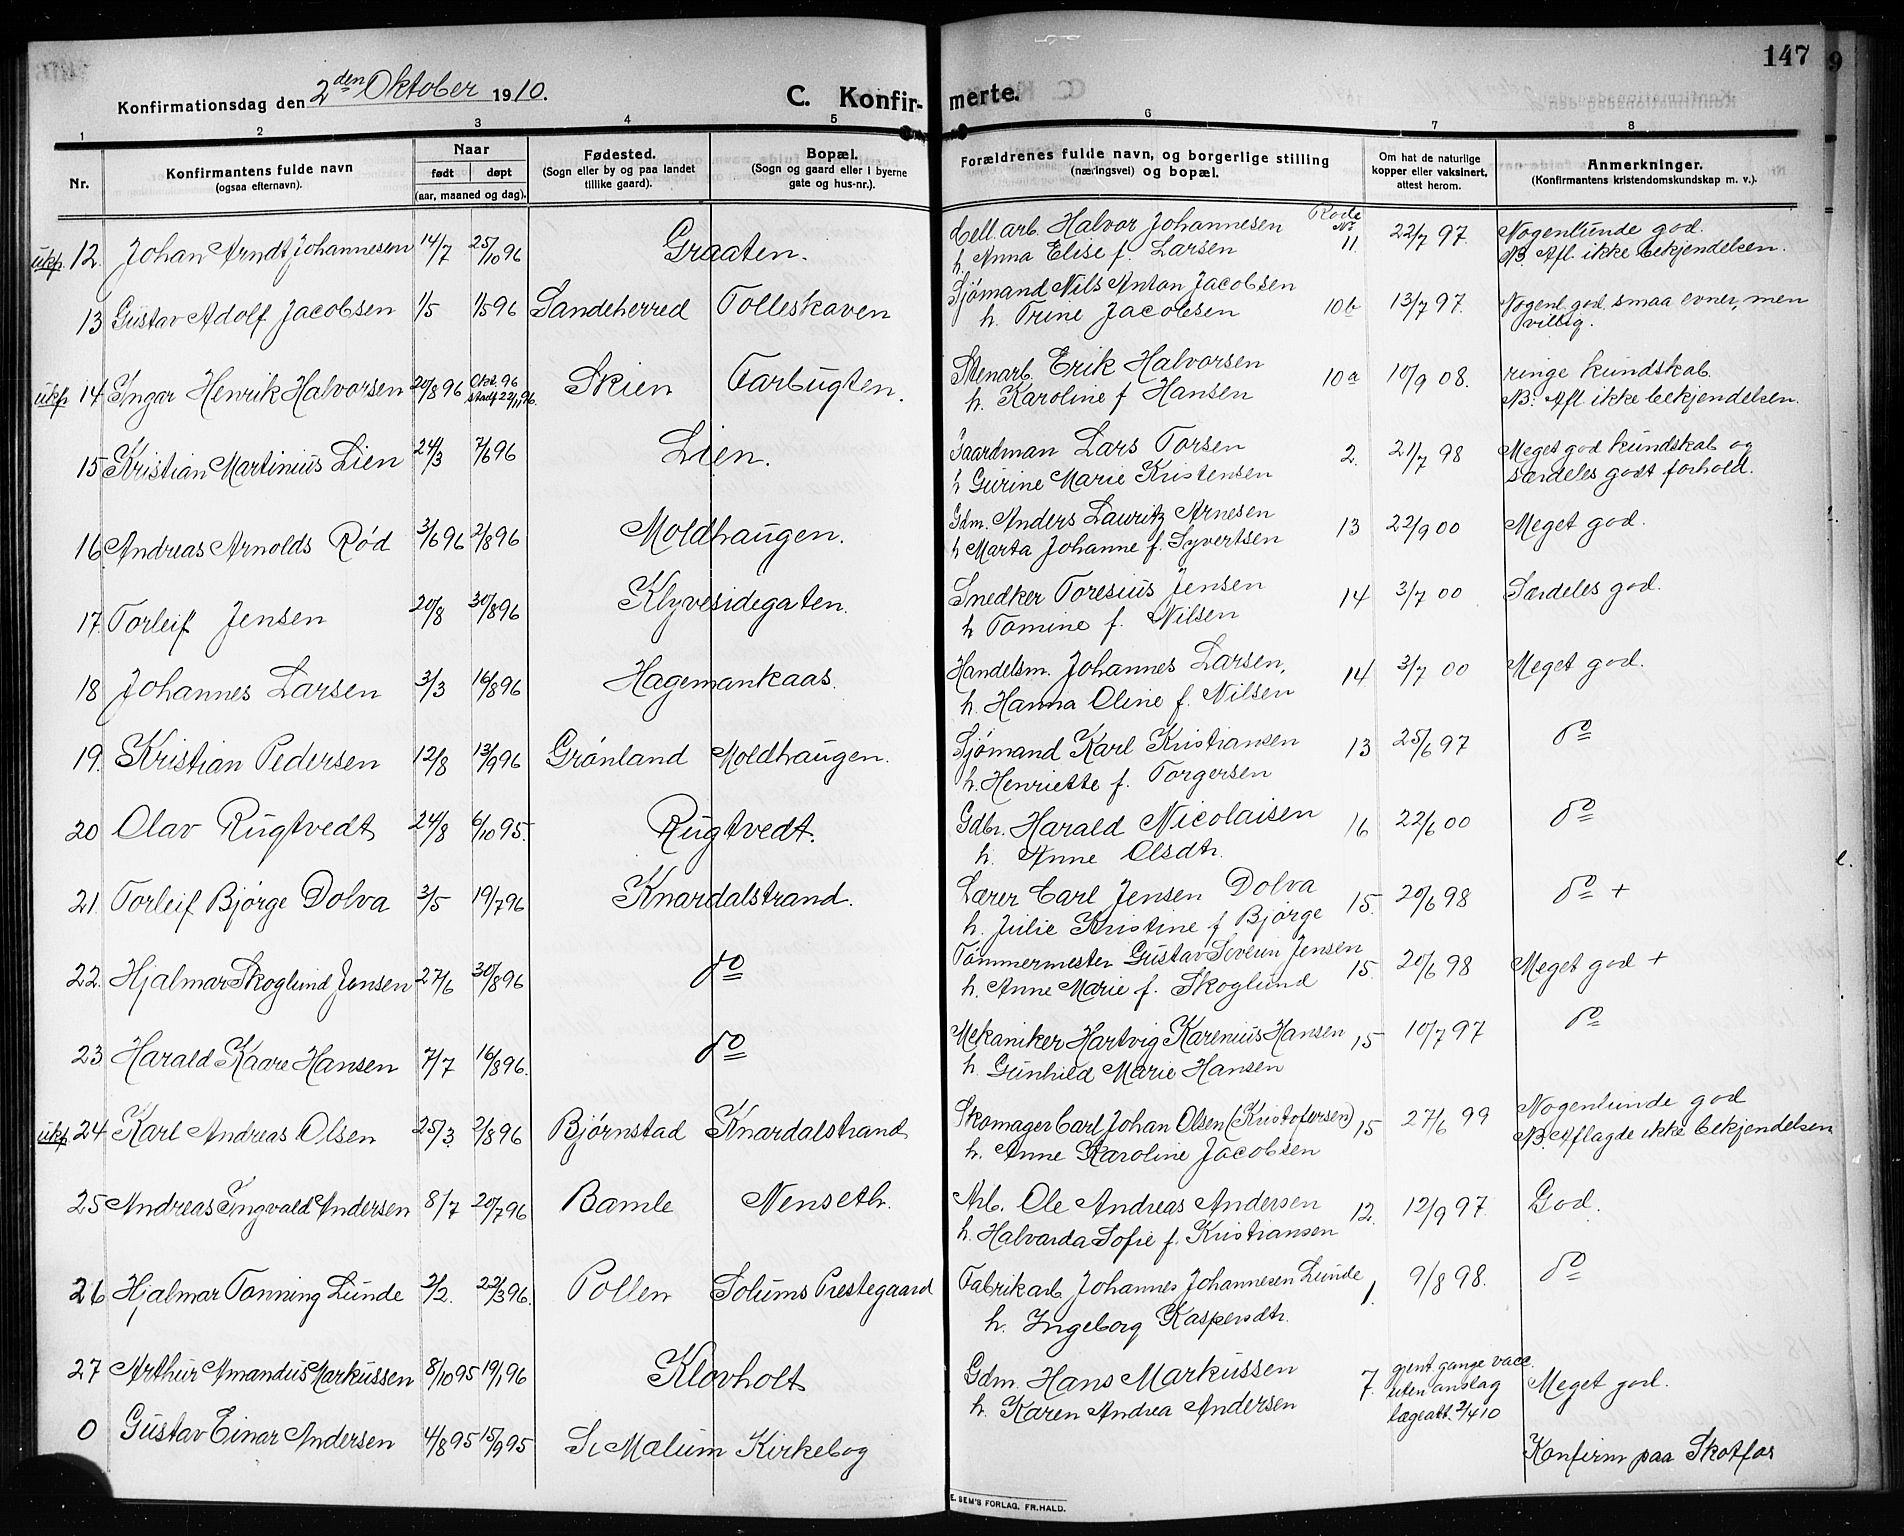 147
Konfirmationsdag den 2den Oktober 1910.
C. Konfirmerte.
1 2 3 4 5 6 7 8
Nr.
Konfirmantens fulde navn
(ogsaa efternavn).
Naar
født døpt
(aar, maaned og dag).
Fødested.
(Sogn eller by og paa landet
tillike gaard).
Bopæl.
(Sogn og gaard eller i byerne
gate og hus-nr.).
Forældrenes fulde navn, og borgerlige stilling
(næringsvei) og bopæl.
Om hat de naturlige
kopper eller vaksinert,
attest herom.
Anmerkninger.
(Konfirmantens kristendomskundskap m. v.).
Rode
Nr
ukf. 12. Johan Arndt Johannesen 14/7 25/10 96 Graaten. Cell. arb. Halvor Johannesen 11. 22/7 97. Nogenlunde god.
h. Anna Elise f. Larsen NB. Afl. ikke bekjendelsen.
13 Gustav Adolf Jacobsen 1/5 1/5 96 Sandeherred Tolleskaven Sjømand Nils Anton Jacobsen 10b 13/7 97. Nogenl. god, smaa evner, men
h. Trine Jacobsen villig.
ukf 14 Ingar Henrik Halvorsen 20/8 96 Okt. 96 Skien Farbugten. Stenarb. Erik Halvorsen 10a 10/9 08. ringe kundskab
stadf 22/11 96. h. Karoline f Hansen NB. Afl. ikke bekjendelsen.
15 Kristian Martinius Lien 24/3 7/6 96 Lien. Gaardman Lars Torsen 2. 21/7 98 Meget god kundskab og
h Gurine Marie Kristensen særdeles godt forhold.
16 Andreas Arnolds Rød 3/6 96 2/8 96 Moldhaugen. Gdm. Anders Lauritz Arnesen 13 22/9 00 Meget god.
h Marta Johanne f. Syvertsen
17. Torleif Jensen 20/8 30/8 96 Klyvesidegaten. Snedker Toresius Jensen 14 3/7 00 Særdeles god.
h Tomine f. Nilsen
18 Johannes Larsen 3/3 16/8 96 Hagemankaas. Handelsm. Johannes Larsen, 14 3/7 00 Meget god.
h. Hanna Oline f. Nilsen
19. Kristian Pedersen 12/8 13/9 96 Grønland Moldhaugen. Sjømand Karl Kristiansen 13 25/6 97 do
h. Henriette f. Torgersen
20 Olav Rugtvedt 24/8 6/10 95. Rugtvedt. Gdbr. Harald Nicolaisen 16 22/6 00 do
h. Anne Olsdtr.
21. Torleif Bjørge Dolva 3/5 19/7 96 Knardalstrand. Lærer Carl Jensen Dolva 15. 20/6 98 do +
h. Julie Kristine f Bjørge
22. Hjalmar Skoglund Jensen 27/6 30/8 96 do Tømmermester Gustav Severin Jensen 15. 20/6 98 Meget god +
h. Anne Marie f. Skoglund
23 Harald Kaare Hansen 7/7 16/8 96. do Mekaniker Hartvig Karenius Hansen 15 10/7 97 do
h. Gunhild Marie Hansen
ukf 24 Karl Andreas Olsen 25/3 2/8 96 Bjørnstad Knardalstrand Skomager Carl Johan Olsen (Kristofersen) 15 27/6 99 Nogenlunde god
h. Anne Karoline Jacobsen NB. Aflagde ikke bekjendelsen
25 Andreas Ingvald Andersen 8/7 20/7 96 Bamle Nenseth. Arb. Ole Andreas Andersen 12. 12/9 97. God.
h. Halvarda Sofie f. Kristiansen
26 Hjalmar Tonning Lunde 2/2. 22/3 96. Pollen Solums Prestegaard Fabrikarb Johannes Johannesen Lunde 1. 9/8 98. do
h. Ingeborg Kaspersdtr.
27 Arthur Amandus Markussen 8/10 95 19/1 96 Klovholt Gdm. Hans Markussen 7. gjent. gange vacc. Meget god.
h. Karen Andrea Andersen uten anslag
lægeatt. 2/4 10
0 Gustav Einar Andersen 4/8 95 15/9 95 Se Mælum Kirkebog Konfirm paa Skotfos
E. SEM'S FORLAG. FR.HALD.